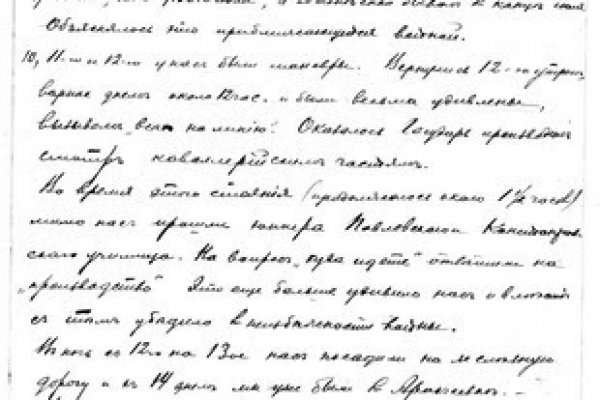 Объяснялось это приближающейся войной.
10, 11-го и 12-го у нас были маневры. Вернулись 12-го утром,
вернее днем около 12 час. и были весьма удивлены,
вызовом „всех на линию“. Оказалось Государь производил
смотръ кавалерийским частям.
Во время этого стояния (продолжалось около 1 1/2 часов)
мимо нас прошли юнкера Павловского
ского училища. На вопрос „куда идете“ ответили на
„производство“ Это еще больше удивило нас и
с тем убедило в неизбежности войны.
В ночь с 12го на 13ое нас посадили на железную
дорогу и в 14 днем мы уже были в